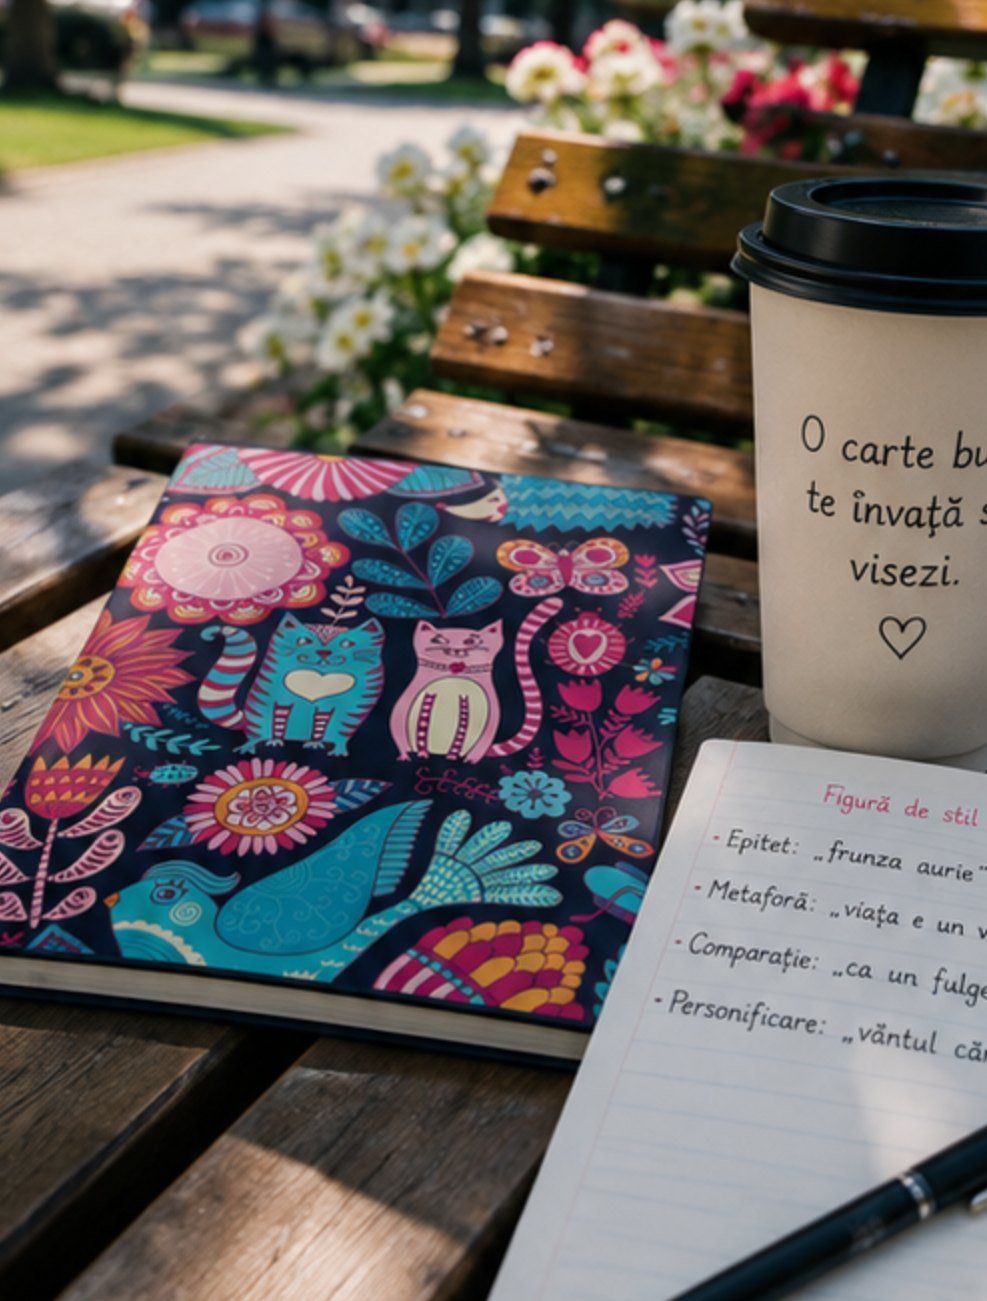 O carte
te învață
visezi.
Figură de stil
- Epitet: „frunza aurie”
- Metaforă: „viața e un
- Comparație: „ca un
- Personificare: „vântul